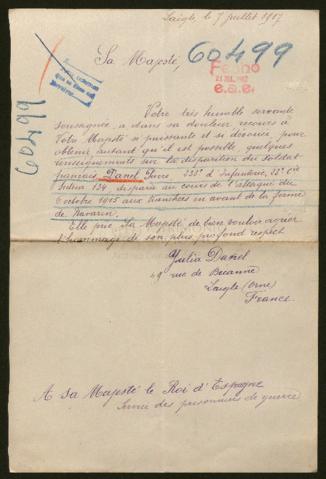 Laigle, le 7 juillet 1917
Sa Majesté,
60499
Fecho
21 JUL 1917
e.a.e.
60499
Votre très humble servante
soussignée, a dans sa douleur recours à
Votre Majesté si puissante et si dévouée, pour
obtenir autant qu'il est possible, quelques
renseignements sur la disparition du soldat
français Danel 338e d'Infanterie, 22e Cie
134 disparu au cours de l'attaque du
6 octobre 1915 aux tranchées en avant de la ferme
de Navarin.
Elle prie, Sa Majesté de bien vouloir agréer
l'hommage de son plus profond respect
Julia Danel
49 rue de
Laigle (Orne)
France.
A sa Majesté le Roi d'Espagne
Service des prisonniers de guerre